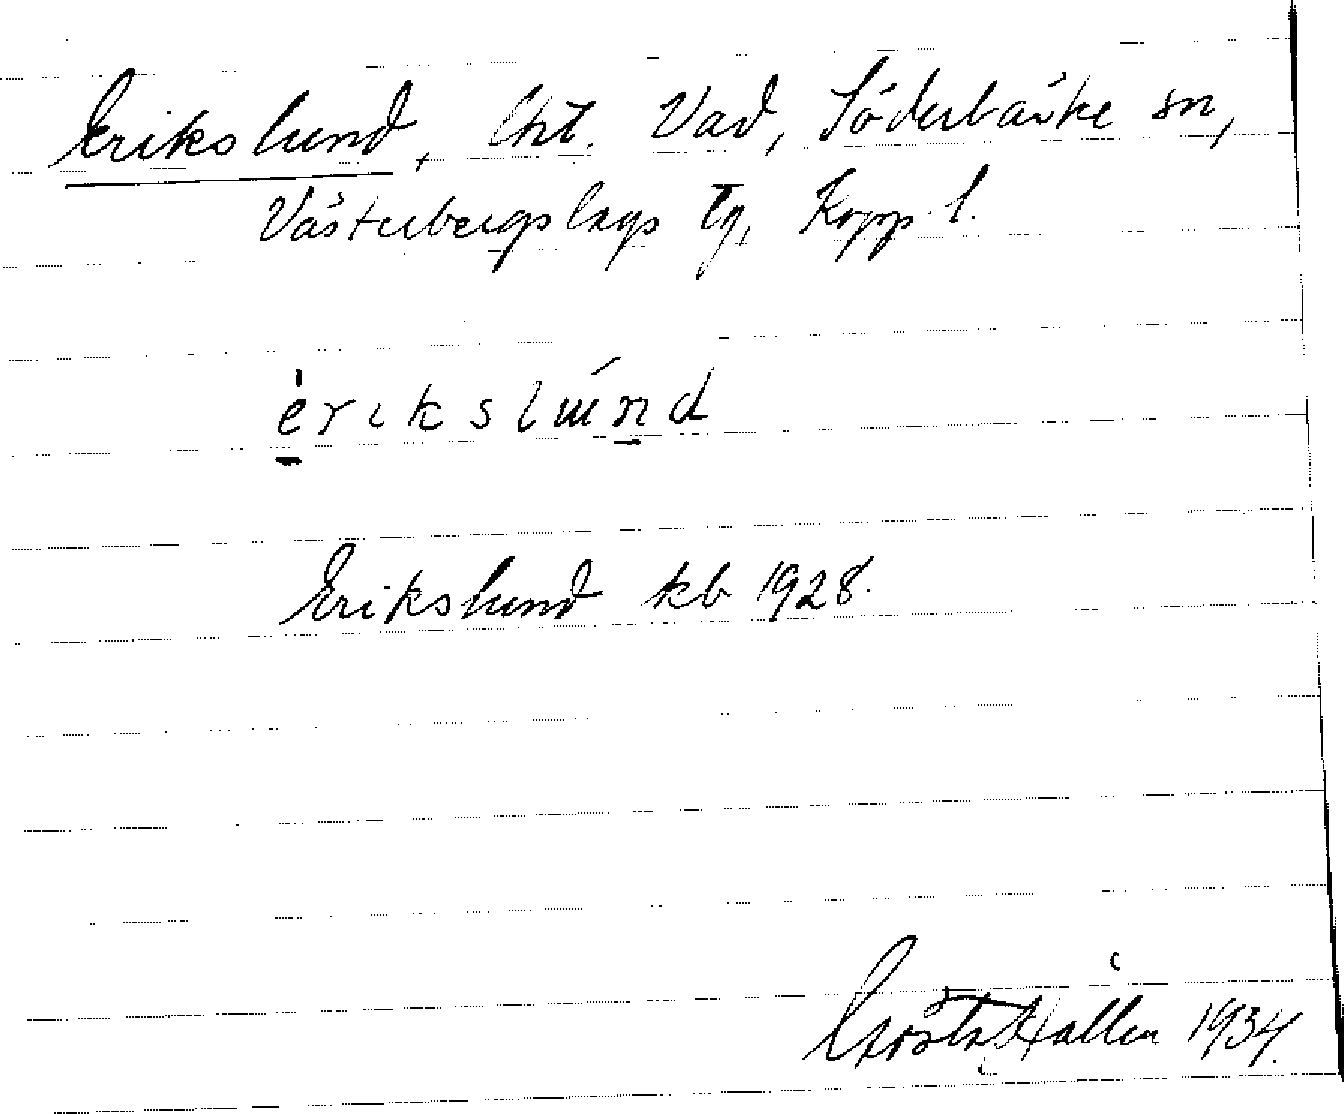 Erikslund, lht. Vad, Söderbärke sn,
Västerbergslags tg, Kopp. l.
èrikslúnd
Erikslund kb 1928.
Gösta Hallen 1934.